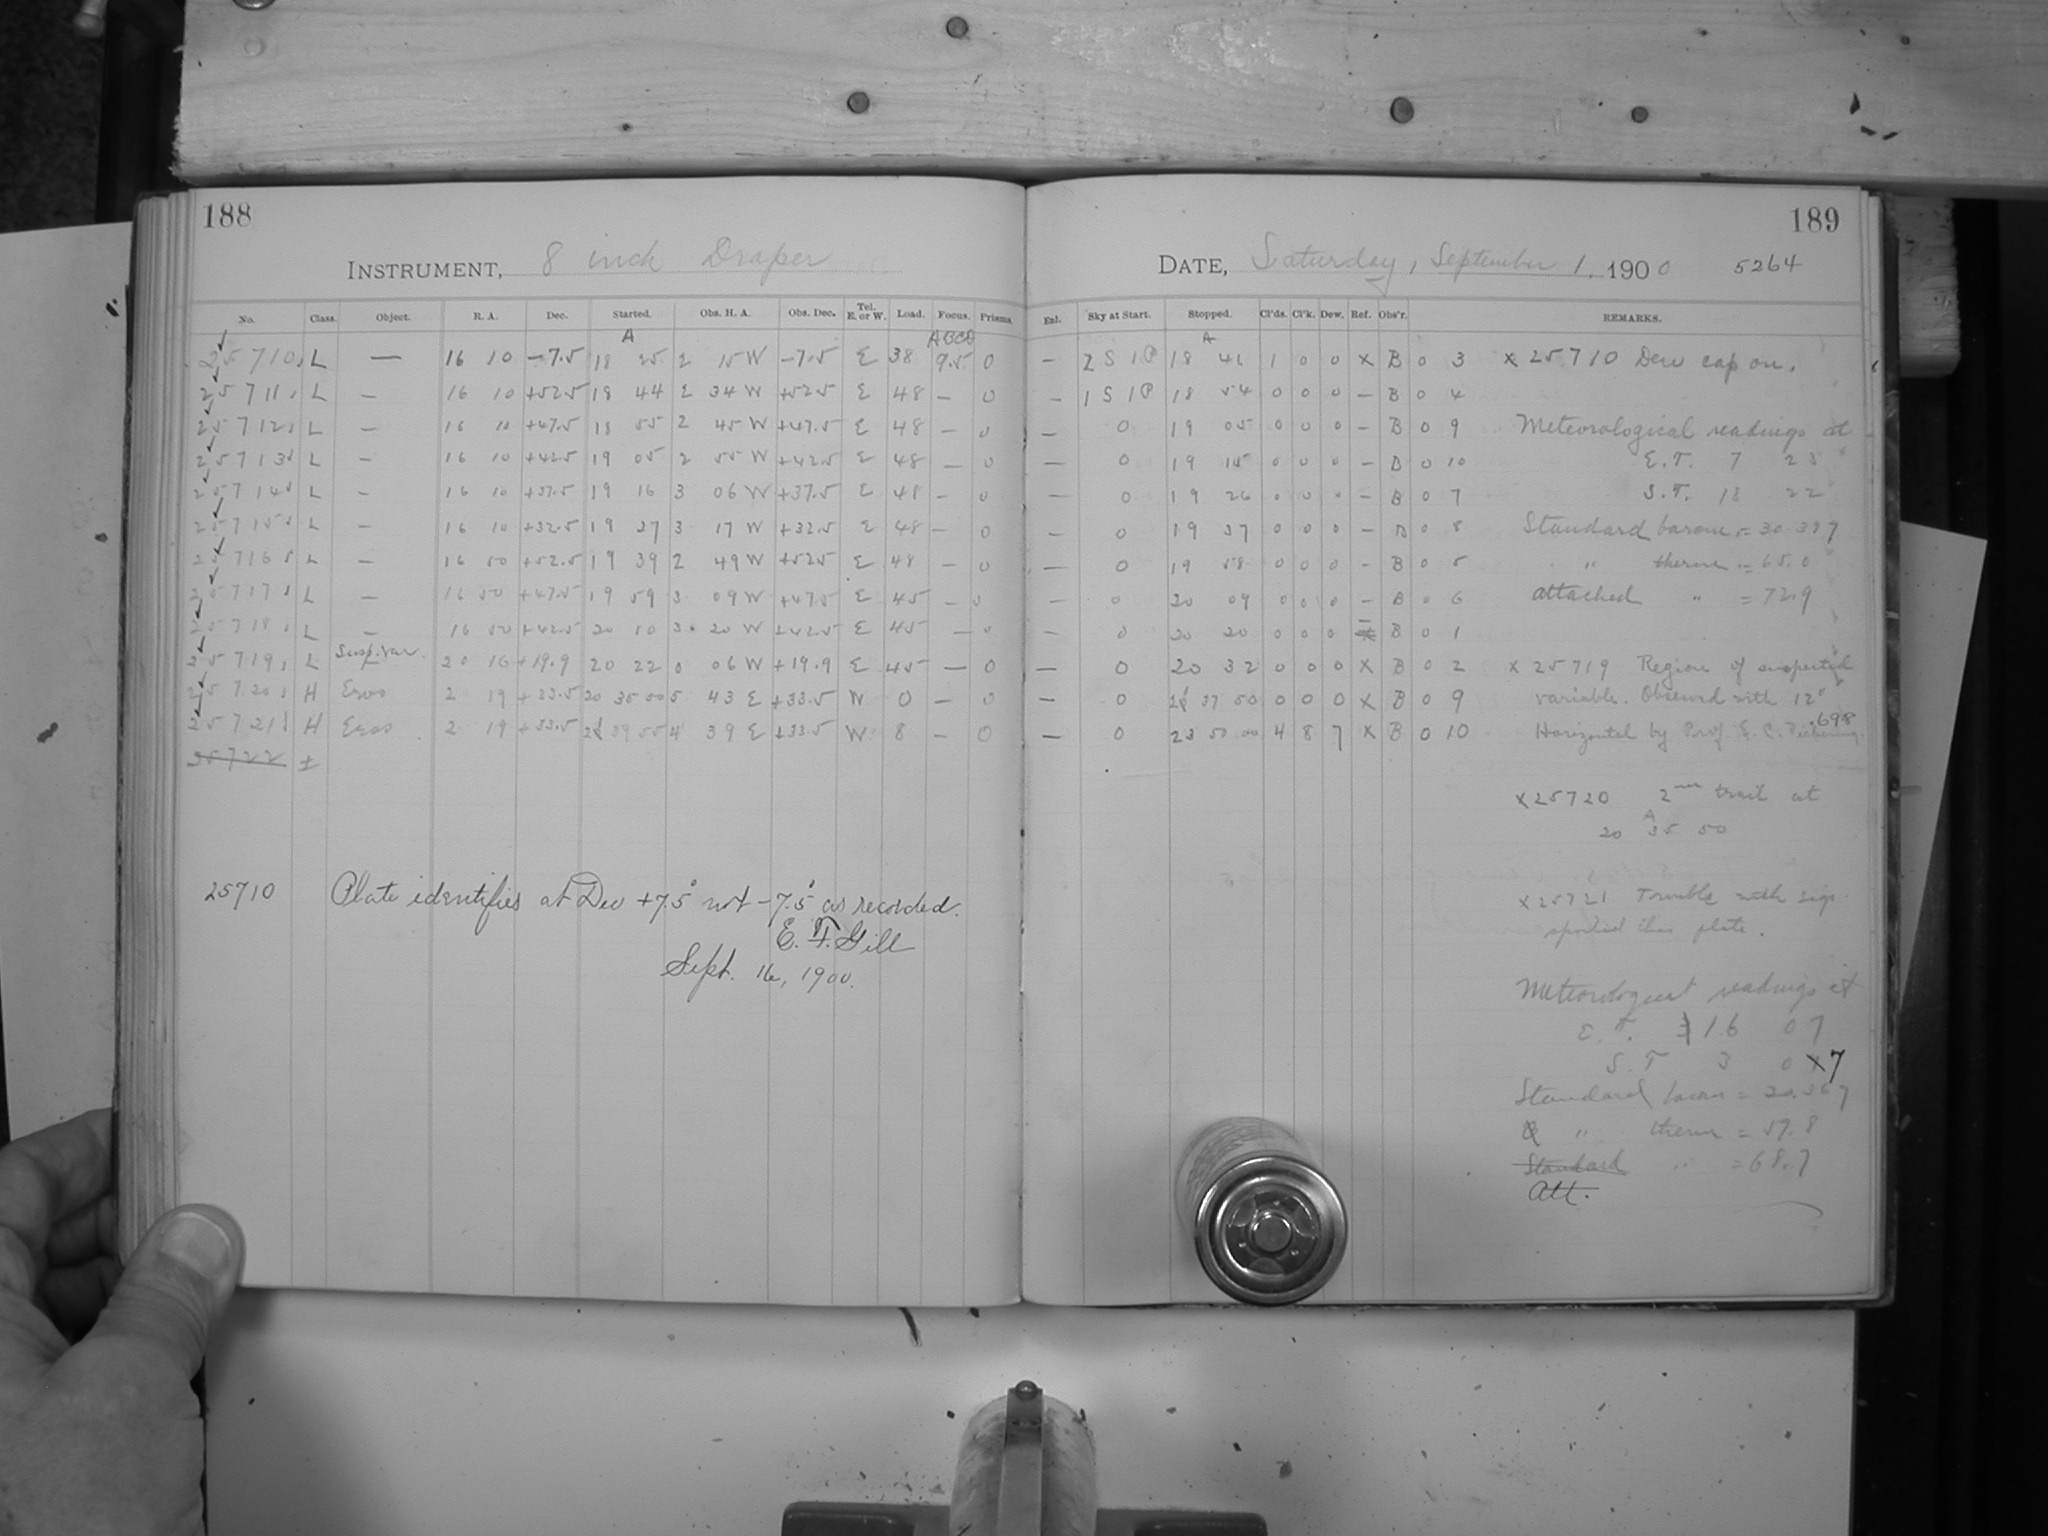 188
INSTRUMENT, 8 inch Draper
No. Class. Object. R. A. Dec. Started. Obs. H. A. Obs. Dec. Tel. E. or W. Load. Focus. Prisms.
A ABCD
25710 L — 16 10 -7.5 18 25 2 15 W -7.5 E 38 9.5 0
25711 L — 16 10 +52.5 18 44 2 34 W +52.5 E 48 — 0
25712 L — 16 10 +47.5 18 55 2 45 W +47.5 E 48 — 0
25713 L — 16 10 +42.5 19 05 2 55 W +42.5 E 48 — 0
25714 L — 16 10 +37.5 19 16 3 06 W +37.5 E 48 — 0
25715 L — 16 10 +32.5 19 27 3 17 W +32.5 E 48 — 0
25716 L — 16 50 +52.5 19 39 2 49 W +52.5 E 48 — 0
25717 L — 16 50 +47.5 19 59 3 09 W +47.5 E 45 — 0
25718 L — 16 50 +42.5 20 10 3 20 W +42.5 E 45 — 0
25719 L Susp. var. 20 16 +19.9 20 22 0 06 W +19.9 E 45 — 0
25720 H Eros 2 19 +33.5 20 35 00 5 43 E +33.5 W 0 — 0
25721 H Eros 2 19 +33.5 39 55 4 39 E +33.5 W 8 — 0
25722 I
25710 Plate identifies at Dec +7.5° not -7.5° as recorded.
E. F. Gill
Sept. 16, 1900.
189
DATE, Saturday, September 1, 1900 5264
Enl. Sky at Start. Stopped. Cl'ds. Cl'k. Dew. Ref. Obs'r. REMARKS.
A
— 2 S 1 P 18 41 1 0 0 x B 0 3 x 25710 Dew cap on.
— 1 S 1 P 18 54 0 0 0 — B 0 4
— 0 19 05 0 0 0 — B 0 9 Meteorological readings at
— 0 19 15 0 0 0 — B 0 10 E.T. 7 23
— 0 19 26 0 0 0 — B 0 7 S.T. 18 22
— 0 19 37 0 0 0 — B 0 8 Standard barom =
— 0 19 58 0 0 0 — B 0 5 " therm = 65.0
— 0 20 09 0 0 0 — B 0 6 attached " = 72.9
— 0 20 20 0 0 0 — B 0 1
— 0 20 32 0 0 0 x B 0 2 x 25719 Region of suspected
— 0 37 50 0 0 0 x B 0 9 variable. Observed with 12"
— 0 23 50 00 4 8 7 x B 0 10 Horizontal by Prof. E. C. Pickering .698
x 25720 2nd trail at
A
20 35 50
x 25721 Trouble with sigs
spoiled this plate.
Meteorological readings at
E. T. 16 07
S. T 3 0 7
Standard barom =
" therm = 57.8
Standard " = 68.7
Att.